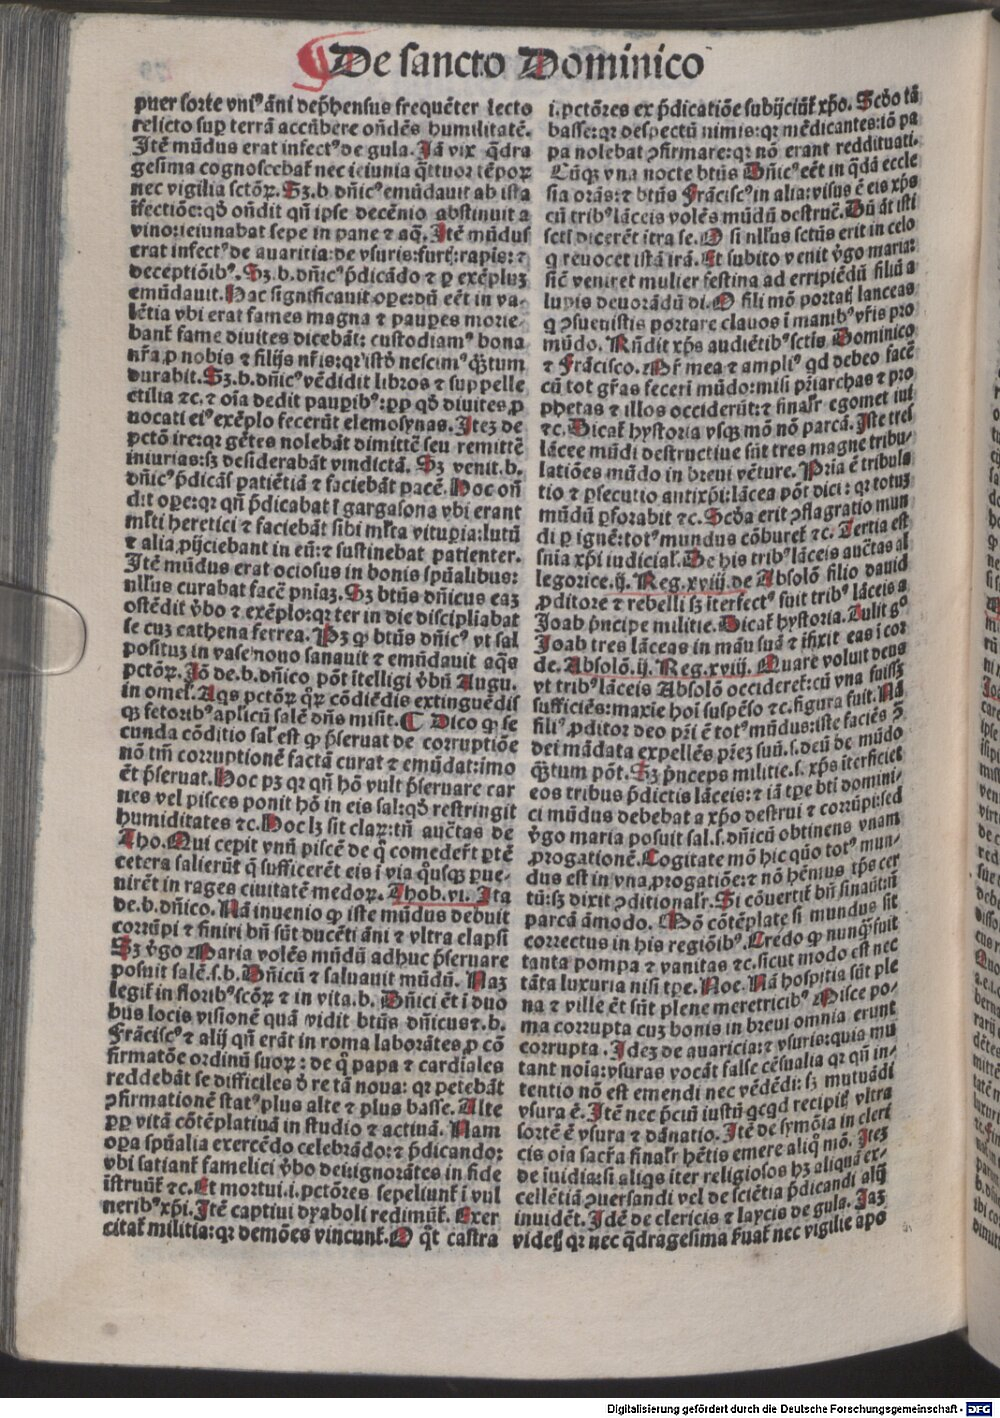 De sancto Dominico
puer forte vniꝰ āni dep̄hensus frequēter lecto
relicto sup terrā accūbere oñdēs humilitatē.
Itē mūdus erat infectꝰ de gula. Iā vix q̄dra
gesima cognoscebat̄ nec ieiunia q̄ttuor tēporꝝ
nec vigilia sctōꝝ. Sz .b dn̄icꝰ emūdauit ab ista
īfectiōe: qđ oñdit qn̄ ipse decēnio abstinuit a
vino: ieiunabat sepe in pane ⁊ aq̄. Itē mūdus
erat infectꝰ de auaritia: de vsuris: furtꝭ: rapīs: ⁊
deceptiōibꝰ. Sz .b. dn̄icꝰ p̄dicādo ⁊ ꝑ exēpluꝫ
emūdauit. Hac significauit oꝑe: dū eēt in va-
lētia vbi erat fames magna ⁊ pauꝑes morie-
bant̄ fame diuites dicebāt: custodiamꝰ bona
nr̄a ꝓ nobis ⁊ filijs nr̄is: qꝛ istđ nescimꝰ q̄ꝫtum
durabit. Sz .b. dn̄icꝰ vēdidit libros ⁊ suppelle
ctilia ⁊c. ⁊ oīa dedit paupibꝰ: ꝓp qđ diuites ꝓ
uocati eiꝰ exēplo fecerūt elemosynas. Iteꝫ de
pctō ire: qꝛ gētes nolebāt dimittē seu remittē
iniurias: sꝫ desiderabāt vindictā. Sz venit .b.
dn̄icꝰ p̄dicās patiētiā ⁊ faciebāt pacē. Hoc oñ
dit oꝑe: qꝛ qn̄ p̄dicabat ī gargasona vbi erant
ml̄ti heretici ⁊ faciebāt sibi ml̄ta vituꝑia: lutū
⁊ alia ꝓijciebant in eū: ⁊ sustinebat patienter.
Itē mūdus erat ociosus in bonis spūalibus:
nl̄lus curabat facē pn̄iaꝫ. Sz btūs dn̄icus eaꝫ
ostēdit v̄bo ⁊ exēplo: qꝛ ter in die discipliabat
se cuꝫ cathena ferrea. Pꝫ ꝙ btūs dn̄icꝰ vt sal
posituꝫ in vase nouo sanauit ⁊ emūdauit aq̄s
pctōꝝ. Iō de .b. dn̄ico pōt ītelligi v̄bū Augu.
in omel̄. Aq̄s pctōꝝ q̄ꝝ cōdiēdis extinguēdis
qꝫ fetoribꝰ aplicū salē dn̄s misit. ¶ Dico ꝙ se
cunda cōditio sal̄ est ꝙ p̄seruat de corruptiōe
nō tm̄ corruptionē factā curat ⁊ emūdat: imo
ēt p̄seruat. Hoc pꝫ qꝛ qn̄ hō vult p̄seruare car
nes vel pisces ponit hō in eis sal: qđ restringit
humiditates ⁊c. Hoc lꝫ sit claꝝ: tn̄ auc̄tas de
Tho. Qui cepit vnū piscē de q̄ comedert̄ ptē
cetera salierūt q̄ sufficerēt eis ī via q̄usqꝫ ꝑue-
nirēt in rages ciuitatē medoꝝ. Thob. vi. Ita
de .b. dn̄ico. Nā inuenio ꝙ iste mūdus debuit
corrūpi ⁊ finiri bn̄ sūt ducēti āni ⁊ vltra elapsi
Sz v̄go Maria volēs mūdū adhuc p̄seruare
posuit salē .s. b. Dn̄icū ⁊ saluauit mūdū. Naꝫ
legit̄ in floribꝰ scōꝝ ⁊ in vita .b. Dn̄ici ēt ī duo
bus locis visionē quā vidit btūs dn̄icus ⁊ .b.
Frāciscꝰ ⁊ alij qn̄ erāt in roma laborātes ꝓ cō
firmatōe ordinū suoꝝ: de q̄ papa ⁊ cardiales
reddebāt se difficiles ꝓ re tā noua: qꝛ petebāt
ꝯfirmationē statꝰ plus alte ⁊ plus basse. Alte
ꝓp vitā cōtēplatiuā in studio ⁊ actiuā. Nam
opa spūalia exercēdo celebrādo: ⁊ p̄dicando:
vbi satiant̄ famelici v̄bo dei: ignorātes in fide
īstruūt̄ ⁊c. Et mortui .i. pctōres sepeliunt̄ ī vul
neribꝰ xp̄i. Itē captiui dyaboli redimūt̄. Exer
citat̄ militia: qꝛ demōes vincunt̄. O q̄t castra
i. pctōres ex p̄dicatiōe subijciūt̄ xp̄o. Scđo tā
basse: qꝛ despectū nimis: qꝛ mēdicantes: iō pa
pa nolebat ꝯfirmare: qꝛ nō erant reddituati.
Cūqꝫ vna nocte btūs Dn̄icꝰ eēt in q̄dā eccle
sia orās: ⁊ btūs Frāciscꝰ in alia: visus ē eis xp̄s
cū tribꝰ lāceis volēs mūdū destruē. Dū āt isti
scti dicerēt itra se. O si nl̄lus sctūs erit in celo
q reuocet istā irā. Et subito venit v̄go maria:
sic̄ veniret mulier festina ad erripiēdū filiū a
lupis deuorādū di. O fili mō portatꝭ lanceas
q ꝯsueuistis portare clauos ī manibꝰ vr̄is pro
mūdo. Rn̄dit xp̄s audiētibꝰ sctīs Dominico
⁊ Frācisco. Mr̄ mea ⁊ ampliꝰ qd debeo facē
cū tot gr̄as feceri mūdo: misi pr̄iarchas ⁊ pro
phetas ⁊ illos occiderūt: ⁊ finalr̄ egomet iui
⁊c. Dicat̄ hystoria vsqꝫ mō nō parcā. Iste tres
lācee mūdi destructiue sūt tres magne tribu-
latiōes mūdo in breui vēture. Pria ē tribula
tio ⁊ ꝑsecutio antixp̄i: lācea pōt dici: qꝛ totuꝫ
mūdū ꝑforabit ⁊c. Scđa erit ꝯflagratio mun
di ꝑ ignē: totꝰ mundus cōburet̄ ⁊c. Tertia est
snīa xp̄i iudicial̄. De his tribꝰ lāceis auc̄tas al
legorice .ij. Reg. xviij. de Absolō filio dauid
ꝓditore ⁊ rebelli sꝫ īterfectꝰ fuit tribꝰ lāceis a
Joab p̄ncipe militie. Dicat̄ hystoria. Tulit gͦ
Joab tres lāceas in māu suā ⁊ īfixit eas ī cor
de. Absolō. ij. Reg. xviij. Quare voluit deus
vt tribꝰ lāceis Absolō occideret̄: cū vna fuisꝫ
sufficiēs: maxie hoī suspēso ⁊c. figura fuit. Nā
filiꝰ ꝓditor deo pr̄i ē totꝰ mūdus: iste faciēs ꝯ̄
dei mādata expellēs pr̄eꝫ suū .s. deū de mūdo
q̄ꝫtum pōt. Sz p̄nceps militie .s. xp̄s īterficiet
eos tribus p̄dictis lāceis: ⁊ iā tꝑe bti domini-
ci mūdus debebat a xp̄o destrui ⁊ corrūpi: sed
v̄go maria posuit sal .s. dn̄icū obtinens vnam
ꝓrogationē. Cogitate mō hic quō totꝰ mun-
dus est in vna ꝓrogatiōe: ⁊ nō hēmus xp̄s cer
tū: sꝫ dixit ꝯditionalr̄. Si cōuertit̄ bn̄ sinautm̄
parcā āmodo. Mō cōtēplate si mundus sit
correctus in his regiōibꝰ. Credo ꝙ nunqꝫ fuit
tanta pompa ⁊ vanitas ⁊c. sicut modo est nec
tāta luxuria nisi tꝑe. Noe. Nā hospitia sūt ple
na ⁊ ville ēt sūt plene meretricibꝰ Misce po-
ma corrupta cuꝫ bonis in breui omnia erunt
corrupta. Ideꝫ de auaricia: ⁊ vsuris: quia mu
tant noīa: vsuras vocāt false cēsualia qꝛ qn̄ in-
tentio nō est emendi nec vēdēdi: sꝫ mutuādi
vsura ē. Itē nec p̄ciū iustū qcqd recipit̄ vltra
sortē ē vsura ⁊ dānatio. Itē de symōia in cleri
cis oīa sacr̄a finalr̄ hētis emere aliq̄ mō. Iteꝫ
de īuidia: si aliqs īter religiosos hꝫ aliquā ex-
cellētiā ꝯuersandi vel de sciētia p̄dicandi alij
inuidēt. Idē de clericis ⁊ laycis de gula. Iaꝫ
videtꝭ qꝛ nec q̄dragesima ẜuat̄ nec vigilie apo
Digitalisierung gefördert durch die Deutsche Forschungsgemeinschaft - DFG